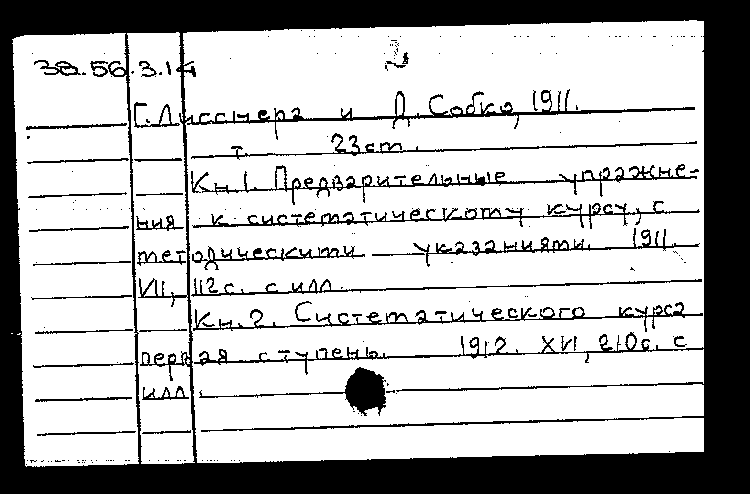 2
38.56.3.14
Г. Лисснера и Д. Собко, 1911.
т. 23 cm.
Кн. 1. Предварительные упражне-
ния к систематическому курсу, с
методическими указаниями. 1911.
VII, 112 с. с илл.
Кн. 2. Систематического курса
первая ступень. 1912. XVI, 210 с. с
илл.